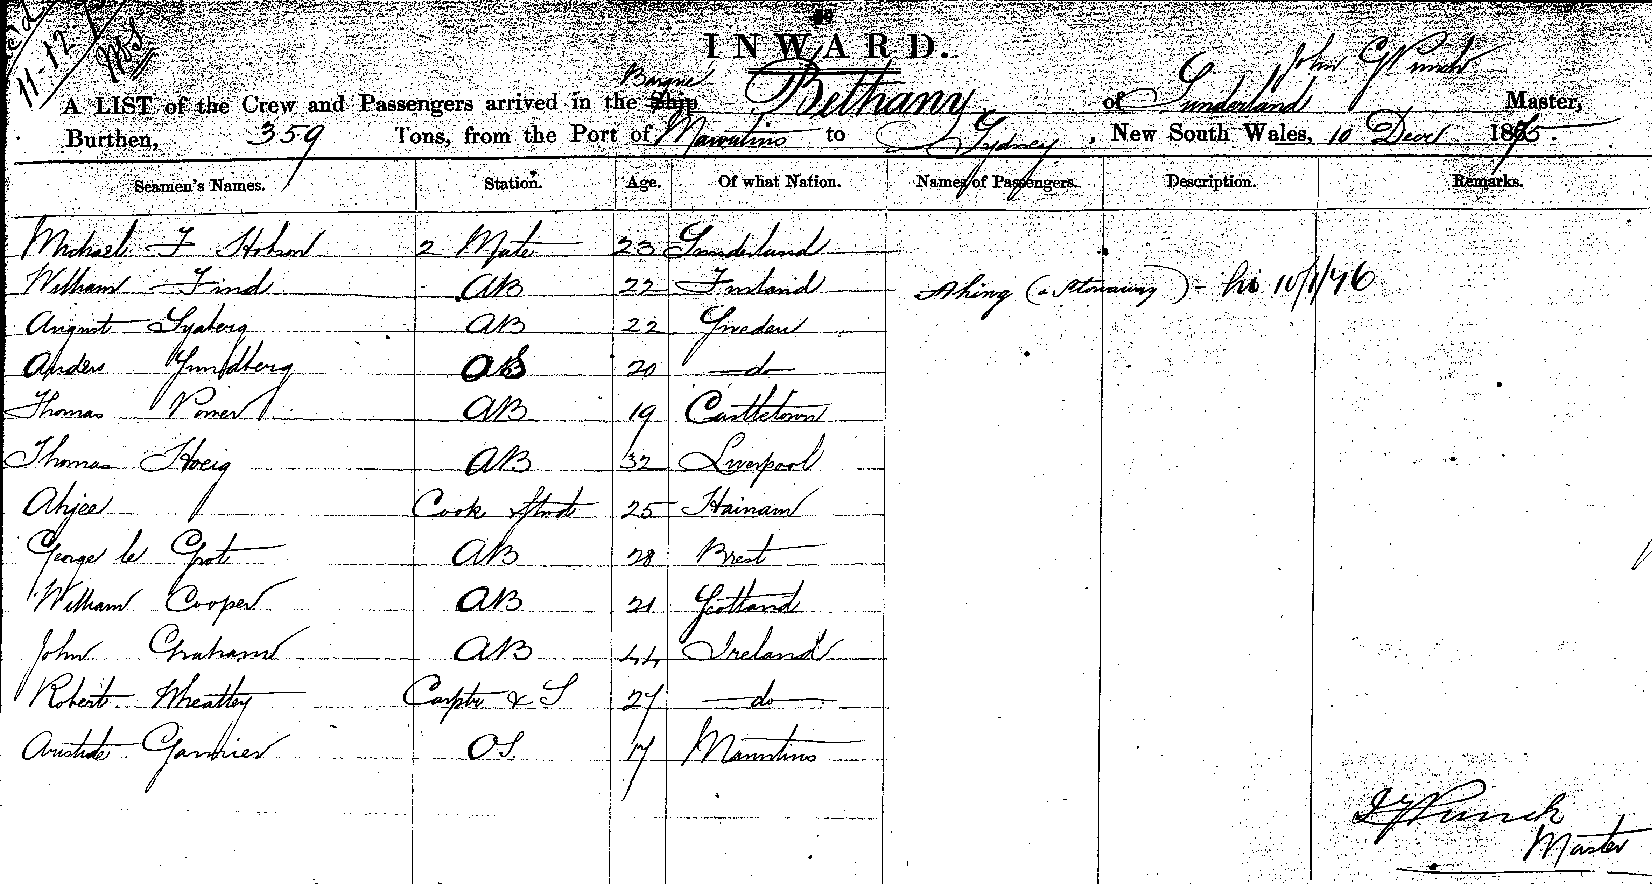 11-12
INWARD.
Barque
John G Punch
A LIST of the Crew and Passengers arrived in the Ship Bethany of Sunderland Master,
Burthen, 359 Tons, from the Port of Mauritius to Sydney, New South Wales, 10 Decr 1875.
Seamen's Names. Station. Age. Of what Nation. Names of Passengers. Description. Remarks.
Michael F Hobson 2 Mate 23 Sunderland
William Find AB 22 Finland Ahing (a Stowaway)
August Syberg AB 22 Sweden
Anders Sundberg 20 do
Thomas Power AB 19 Castletown
Thomas Hoeig AB 32 Liverpool
Ahjee Cook & Stwd 25 Hainam
George le Grot AB 28 Brest
William Cooper AB 21 Scotland
John Graham AB 44 Ireland
Robert Wheatley Carptr & S 27 do
Aristide Garnier OS 17 Mauritius
J G Punch
Master